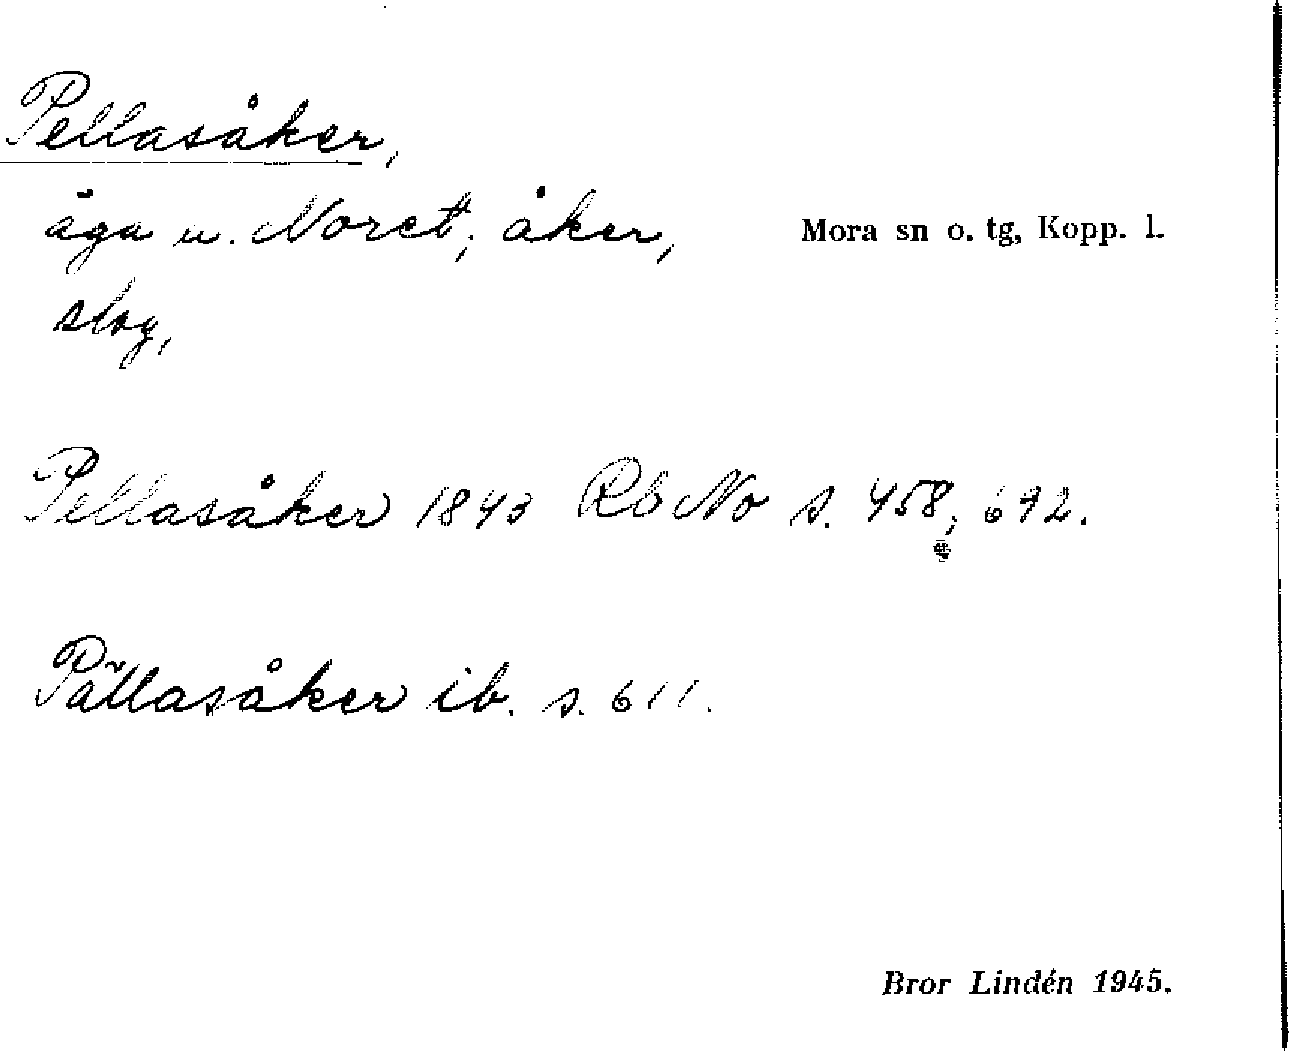 Pellasåker,
äga u. Noret; åker, Mora sn o. tg, Kopp. l.
slog,
Pellasåker 1843 Rb No s. 458; 692.
Pällasåker ib. s. 611.
Bror Lindén 1945.